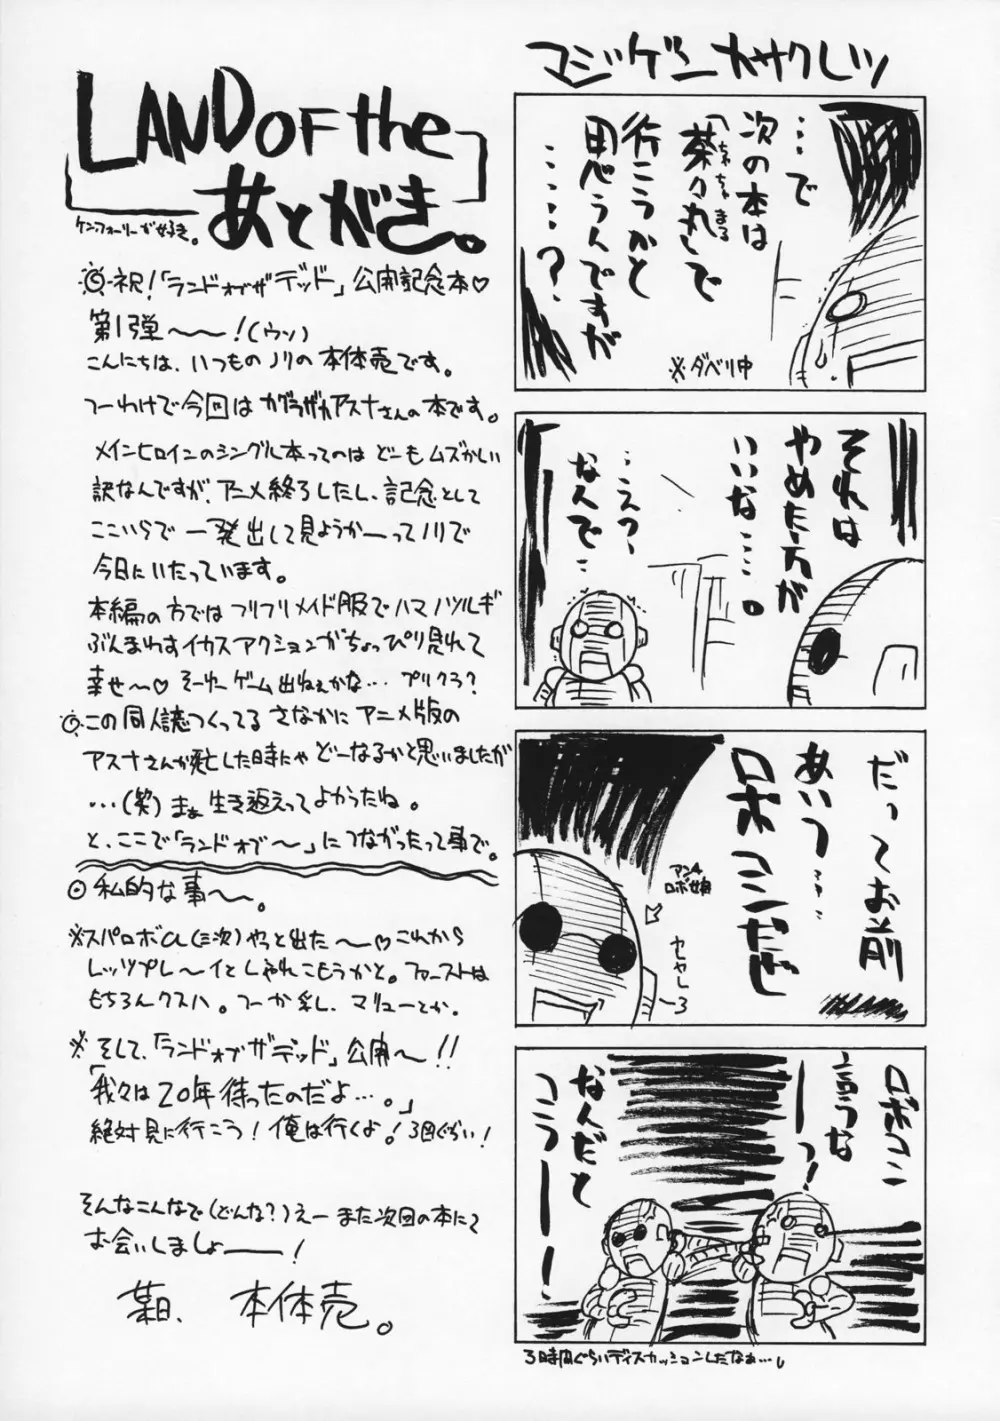 LAND OF the
あとがき。
ケン・フォーリーが好き。
◎祝!「ランドオブザデッド」公開記念本♡
第1弾〜〜!(ウソ)
こんにちは、いつものノリの本体売です。
つーわけで今回はカグラザカアスナさんの本です。
メインヒロインのシングル本ってのはどーもムズかしい
訳なんですが、アニメ終了したし、記念として
ここいらで一発出して見ようかーってノリで
今日にいたっています。
本編の方ではフリフリメイド服でハマノツルギ
ぶんまわすイカスアクションがちょっぴり見れて
幸せ〜♡ そーゆーゲーム出ねぇかな… プリクラ?
◎この同人誌つくってるさなかにアニメ版の
アスナさんが死亡した時にゃどーなるかと思いましたが
…(笑)まぁ生き返えってよかったね。
と、ここで「ランドオブ〜」につながったって事で。
◎私的な事〜。
※スパロボα(三次)やっと出た〜♡これから
レッツプレ〜イとしゃれこもうかと。ファーストは
もちろんクスハ。つーか乳し、マリューとか。
※そして、「ランドオブザデッド」公開〜!!
「我々は20年待ったのだよ…。」
絶対見に行こう!俺は行くよ!3回ぐらい!
そんなこんなで(どんな?)えーまた次回の本にて
お会いしましょーー!
某日、本体売。
マジゲンカサクレツ
…で
次の本は
「茶々丸」で
ちゃちゃまる
行こうかと
思うんですが
……?
※ダベリ中
それは
やめた方が
いいな…。
…えっ、
なんで…
だってお前
あいつ…
ロボコンだぜ
アンチ
ロボ娘
ロボコン
言うな
ーーっ!
なんだと
コラーー!
3時間ぐらいディスカッションしたなぁ…。